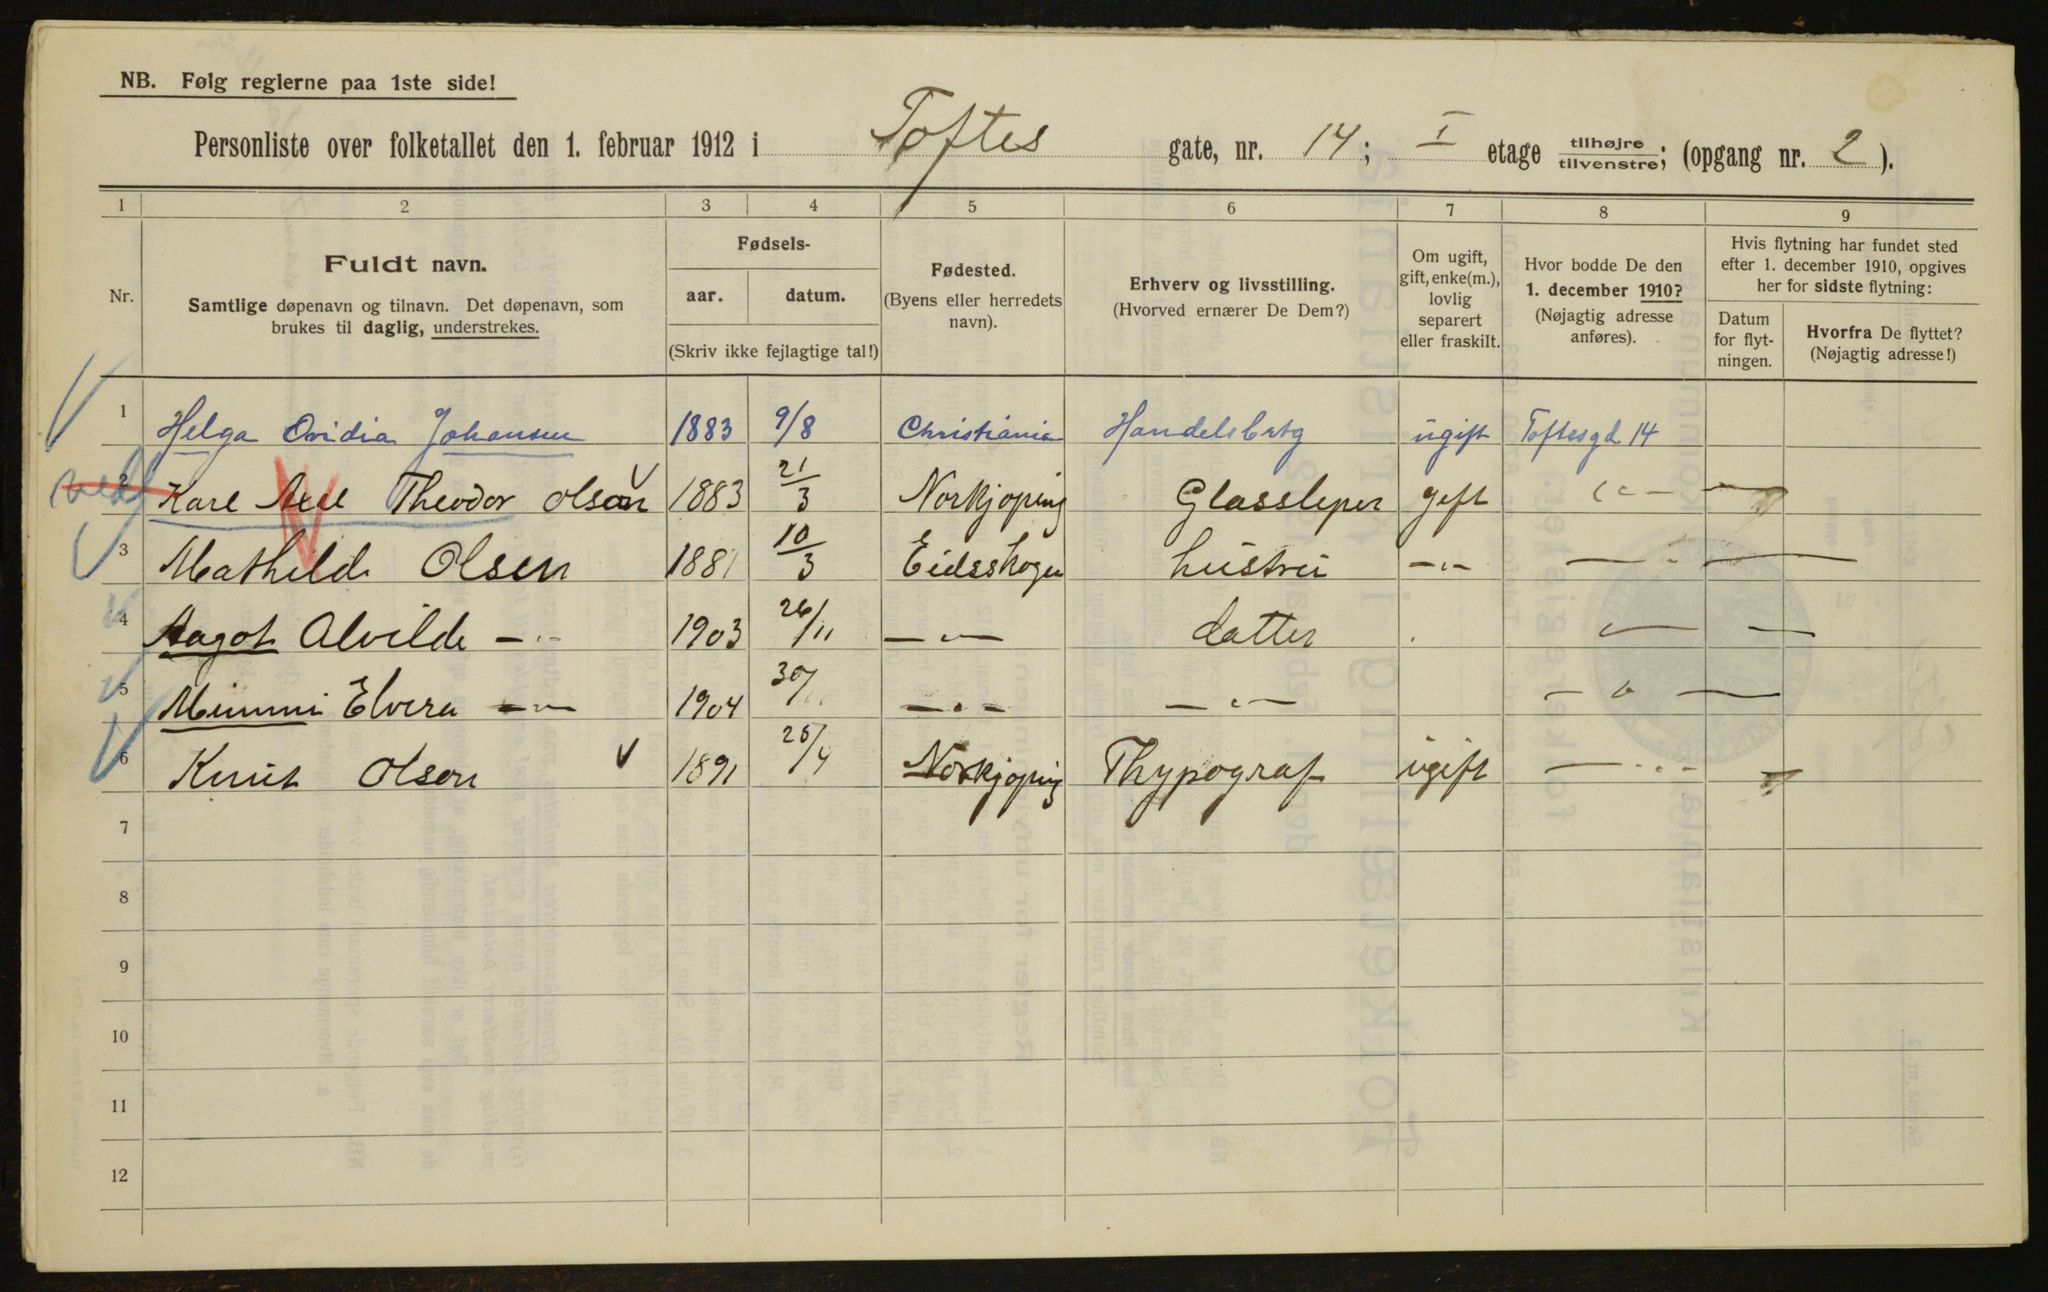 NB. Følg reglerne paa 1ste side!
Personliste over folketallet den 1. februar 1912 i Toftes gate, nr. 14; I etage tilhøjre/tilvenstre; (opgang nr. 2).
1 2 3 4 5 6 7 8 9
Nr.
Fuldt navn.
Samtlige døpenavn og tilnavn. Det døpenavn, som
brukes til daglig, understrekes.
Fødsels-
aar. datum.
(Skriv ikke fejlagtige tal!)
Fødested.
(Byens eller herredets
navn).
Erhverv og livsstilling.
(Hvorved ernærer De Dem?)
Om ugift,
gift, enke(m.),
lovlig
separert
eller fraskilt.
Hvor bodde De den
1. december 1910?
(Nøjagtig adresse
anføres).
Hvis flytning har fundet sted
efter 1. december 1910, opgives
her for sidste flytning:
Datum
for flyt-
ningen.
Hvorfra De flyttet?
(Nøjagtig adresse!)
1 Helga Ovidia Johansen 1883 9/8 Christiania Handelsbetg ugift Toftesgd 14
2 Karl Axel Theodor Olson 1883 21/3 Norkjoping Glassleper gift —"—
3 Mathilde Olsen 1881 10/3 Eidsskogen hustru —"— —"—
4 Aagot Alvilde —"— 1903 26/11 —"— datter —"—
5 Mimmi Elvera —"— 1904 30/11 —"— —"— —"—
6 Knut Olson 1891 25/4 Norkjoping Thypograf ugift —"—
7
8
9
10
11
12